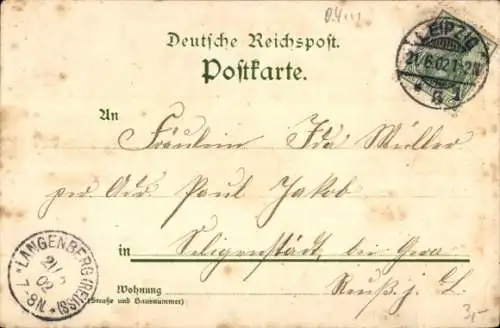 LEIPZIG
21/6.02 1-2N
* 8 1
Deutsche Reichspost.
Postkarte.
An
Fräulein Ida Müller
per Adr. Paul Jakob
in Seligenstädt, bei Gera
Reuß j. L.
Wohnung
(Straße und Hausnummer)
*LANGENBERG (REUSS)*
02
7-8N.
3,-